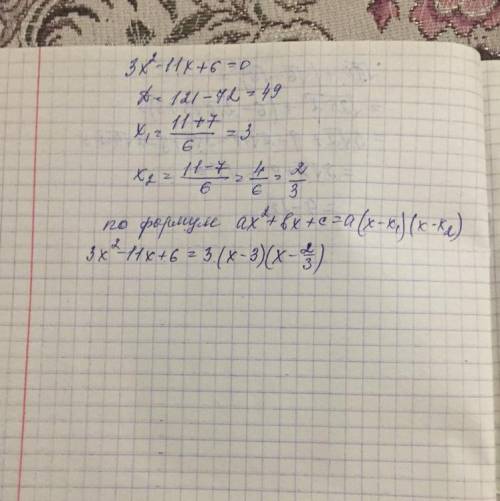 3x²-11x+6=0
D=121-72=49
x₁=\frac{11+7}{6}=3
x₂=\frac{11-7}{6}=\frac{4}{6}=\frac{2}{3}
по формуле ax²+bx+c=a(x-x₁)(x-x₂)
3x²-11x+6=3(x-3)(x-\frac{2}{3})